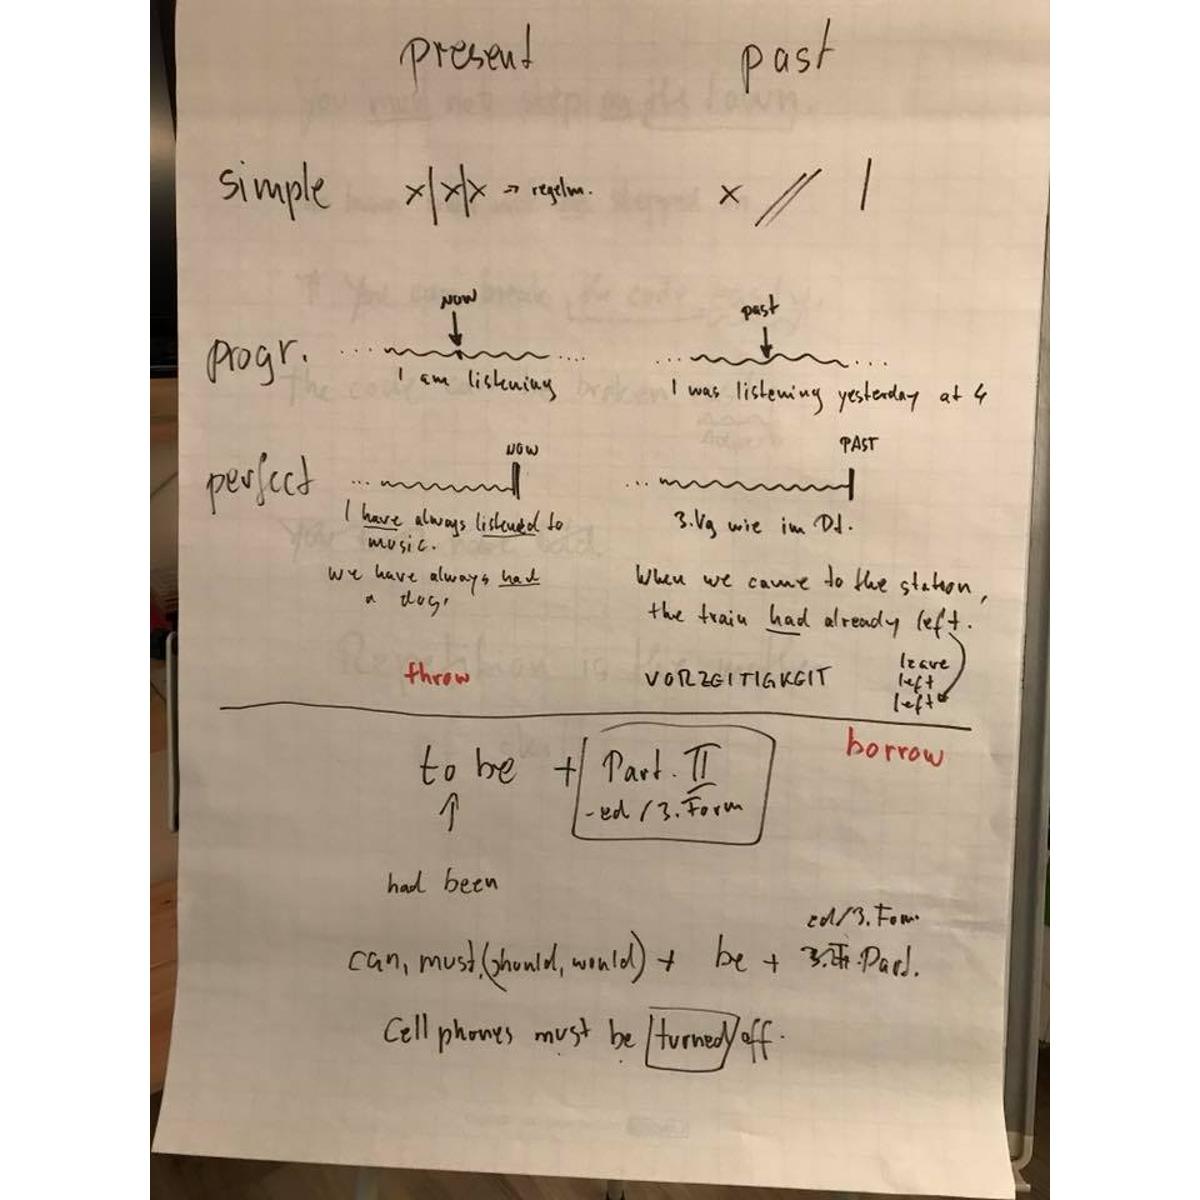 present past
simple x|x|x → regelm. x // |
NOW past
progr. ... ....
... ...
I am listening I was listening yesterday at 4
NOW PAST
perfect ... ...
I have always listened to 3.Vg wie im Dt.
music.
we have always had When we came to the station,
a dog, the train had already left.
leave
throw VORZEITIGKEIT left
left
borrow
to be + Part. II
↑ -ed / 3. Form
had been
ed/3. Form
can, must, (should, would) + be + Part.
Cell phones must be turned off.